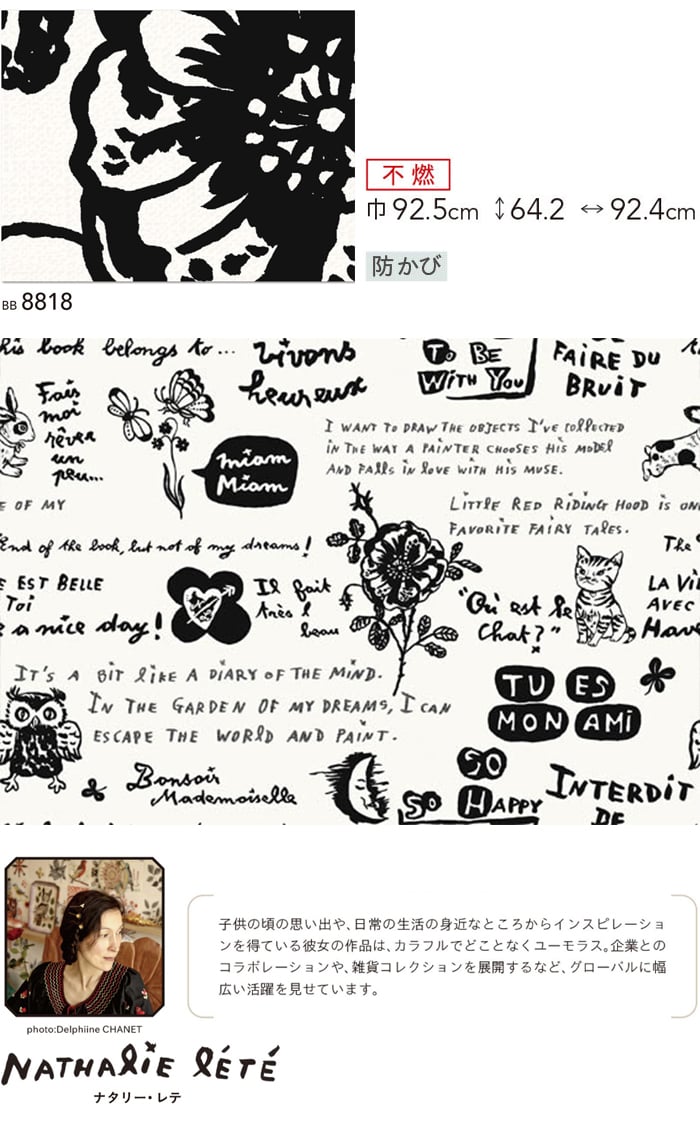 不燃
巾 92.5cm ↕64.2 ↔92.4cm
防かび
BB 8818
his book belongs to...
vivons
heureux
To BE
WITH YOU
FAIRE DU
BRUIT
Fais
moi
rêver
un
peu...
miam
Miam
I WANT TO DRAW THE OBJECTS I'VE COLLECTED
IN THE WAY A PAINTER CHOOSES HIS MODEL
AND FALLS IN LOVE WITH HIS MUSE.
E OF MY
LITTLE RED RIDING HOOD IS ON
FAVORITE FAIRY TALES.
End of the book, but not of my dreams!
The
E EST BELLE
Toi
a nice day!
Il fait
très l
beau
"Qui est le
Chat?"
LA Vi
AVEC
Have
IT'S A BIT LIKE A DIARY OF THE MIND.
IN THE GARDEN OF MY DREAMS, I CAN
ESCAPE THE WORLD AND PAINT.
TU ES
MON AMi
Bonsoir
Mademoiselle
SO
SO HAPPY
INTERDIT
DE
子供の頃の思い出や、日常の生活の身近なところからインスピレーショ
ンを得ている彼女の作品は、カラフルでどことなくユーモラス。企業との
コラボレーションや、雑貨コレクションを展開するなど、グローバルに幅
広い活躍を見せています。
photo:Delphiine CHANET
NATHALIE LÉTÉ
ナタリー・レテ